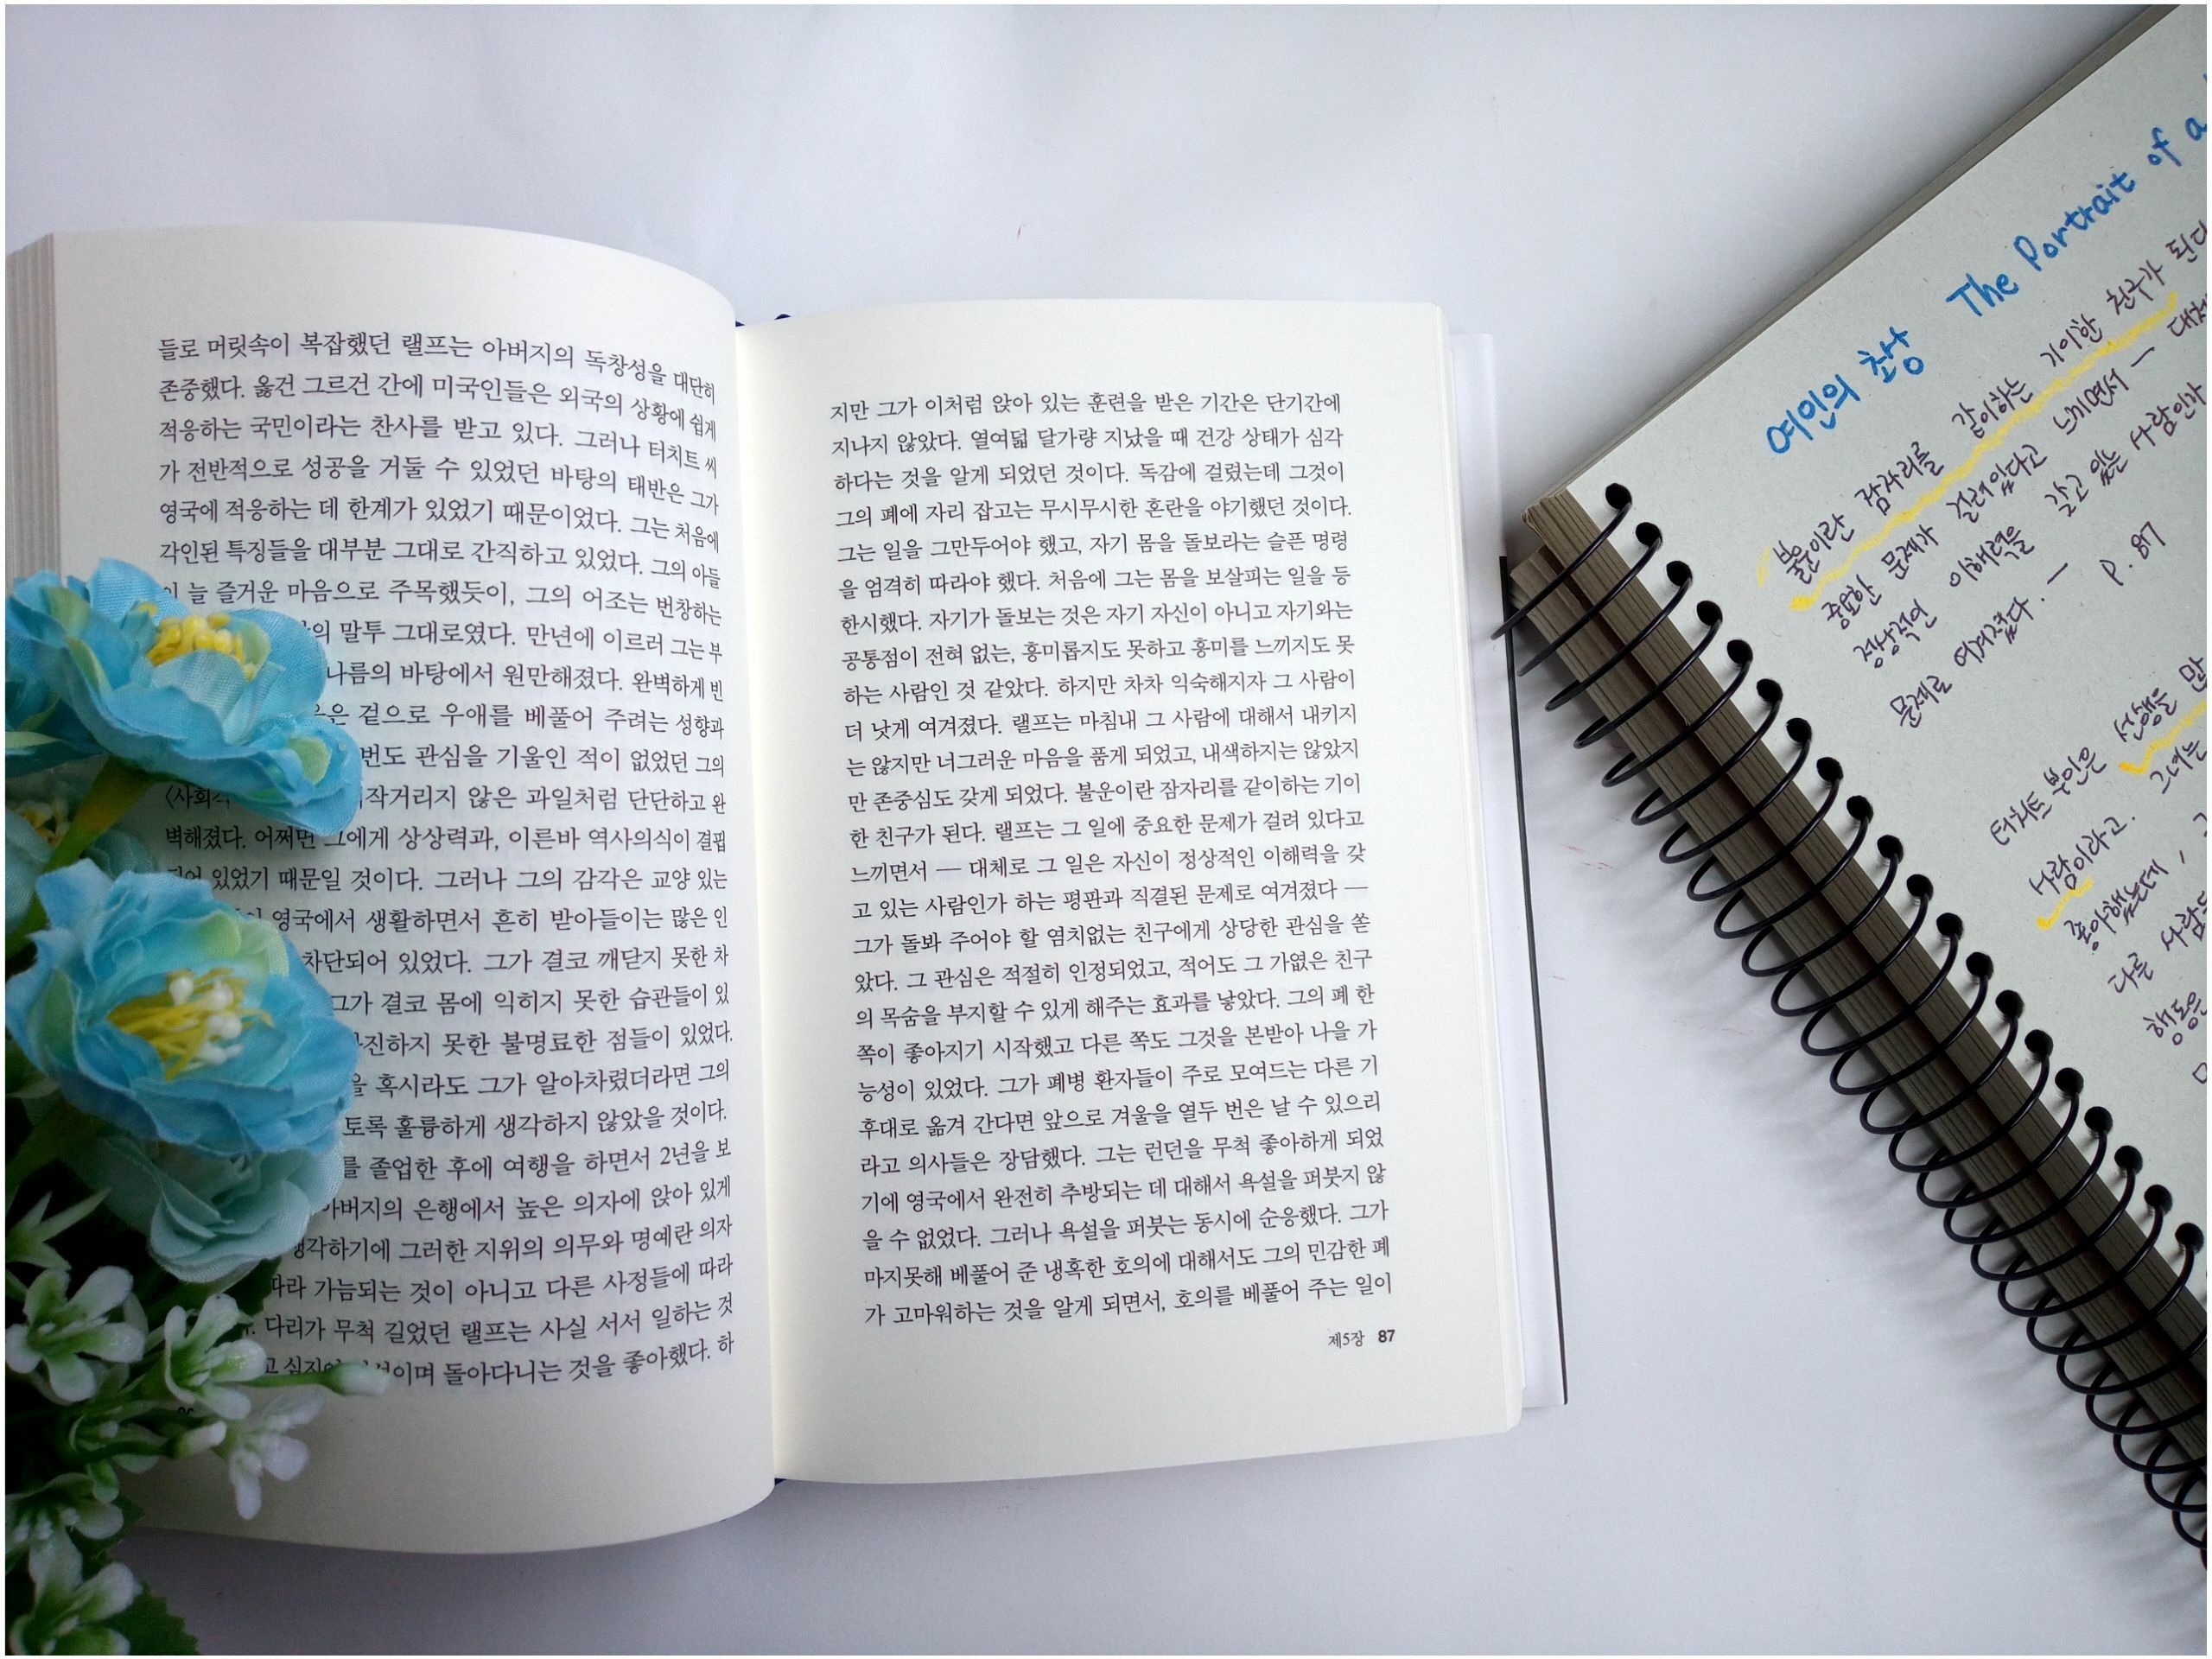 들로 머릿속이 복잡했던 랠프는 아버지의 독창성을 대단히
존중했다. 옳건 그르건 간에 미국인들은 외국의 상황에 쉽게
적응하는 국민이라는 찬사를 받고 있다. 그러나 터치트 씨
가 전반적으로 성공을 거둘 수 있었던 바탕의 태반은 그가
영국에 적응하는 데 한계가 있었기 때문이었다. 그는 처음에
각인된 특징들을 대부분 그대로 간직하고 있었다. 그의 아들
늘 즐거운 마음으로 주목했듯이, 그의 어조는 번창하는
말투 그대로였다. 만년에 이르러 그는 부
나름의 바탕에서 원만해졌다. 완벽하게 빈
겉으로 우애를 베풀어 주려는 성향과
번도 관심을 기울인 적이 없었던 그의
않은 과일처럼 단단하고 완
벽해졌다. 어쩌면 그에게 상상력과, 이른바 역사의식이 결핍
있었기 때문일 것이다. 그러나 그의 감각은 교양 있는
영국에서 생활하면서 흔히 받아들이는 많은 인
차단되어 있었다. 그가 결코 깨닫지 못한 차
그가 결코 몸에 익히지 못한 습관들이 있
못한 불명료한 점들이 있었다.
혹시라도 그가 알아차렸더라면 그의
토록 훌륭하게 생각하지 않았을 것이다.
를 졸업한 후에 여행을 하면서 2년을 보
아버지의 은행에서 높은 의자에 앉아 있게
생각하기에 그러한 지위의 의무와 명예란 의자
따라 가늠되는 것이 아니고 다른 사정들에 따라
다리가 무척 길었던 랠프는 사실 서서 일하는 것
돌아다니는 것을 좋아했다. 하
지만 그가 이처럼 앉아 있는 훈련을 받은 기간은 단기간에
지나지 않았다. 열여덟 달가량 지났을 때 건강 상태가 심각
하다는 것을 알게 되었던 것이다. 독감에 걸렸는데 그것이
그의 폐에 자리 잡고는 무시무시한 혼란을 야기했던 것이다.
그는 일을 그만두어야 했고, 자기 몸을 돌보라는 슬픈 명령
을 엄격히 따라야 했다. 처음에 그는 몸을 보살피는 일을 등
한시했다. 자기가 돌보는 것은 자기 자신이 아니고 자기와는
공통점이 전혀 없는, 흥미롭지도 못하고 흥미를 느끼지도 못
하는 사람인 것 같았다. 하지만 차차 익숙해지자 그 사람이
더 낫게 여겨졌다. 랠프는 마침내 그 사람에 대해서 내키지
는 않지만 너그러운 마음을 품게 되었고, 내색하지는 않았지
만 존중심도 갖게 되었다. 불운이란 잠자리를 같이하는 기이
한 친구가 된다. 랠프는 그 일에 중요한 문제가 걸려 있다고
느끼면서 — 대체로 그 일은 자신이 정상적인 이해력을 갖
고 있는 사람인가 하는 평판과 직결된 문제로 여겨졌다 —
그가 돌봐 주어야 할 염치없는 친구에게 상당한 관심을 쏟
았다. 그 관심은 적절히 인정되었고, 적어도 그 가엾은 친구
의 목숨을 부지할 수 있게 해주는 효과를 낳았다. 그의 폐 한
쪽이 좋아지기 시작했고 다른 쪽도 그것을 본받아 나을 가
능성이 있었다. 그가 폐병 환자들이 주로 모여드는 다른 기
후대로 옮겨 간다면 앞으로 겨울을 열두 번은 날 수 있으리
라고 의사들은 장담했다. 그는 런던을 무척 좋아하게 되었
기에 영국에서 완전히 추방되는 데 대해서 욕설을 퍼붓지 않
을 수 없었다. 그러나 욕설을 퍼붓는 동시에 순응했다. 그가
마지못해 베풀어 준 냉혹한 호의에 대해서도 그의 민감한 폐
가 고마워하는 것을 알게 되면서, 호의를 베풀어 주는 일이
제5장 87
여인의 초상 The Portrait of a
불운이란 잠자리를 같이하는 기이한 친구가 된다
중요한 문제가 걸려있다고 느끼면서 —
정상적인 이해력을 갖고 있는 사람인가
문제로 여겨졌다. — P. 87
터치트 부인은 선행을
사람이라고. 그녀는
좋아했는데,
다른
행동은